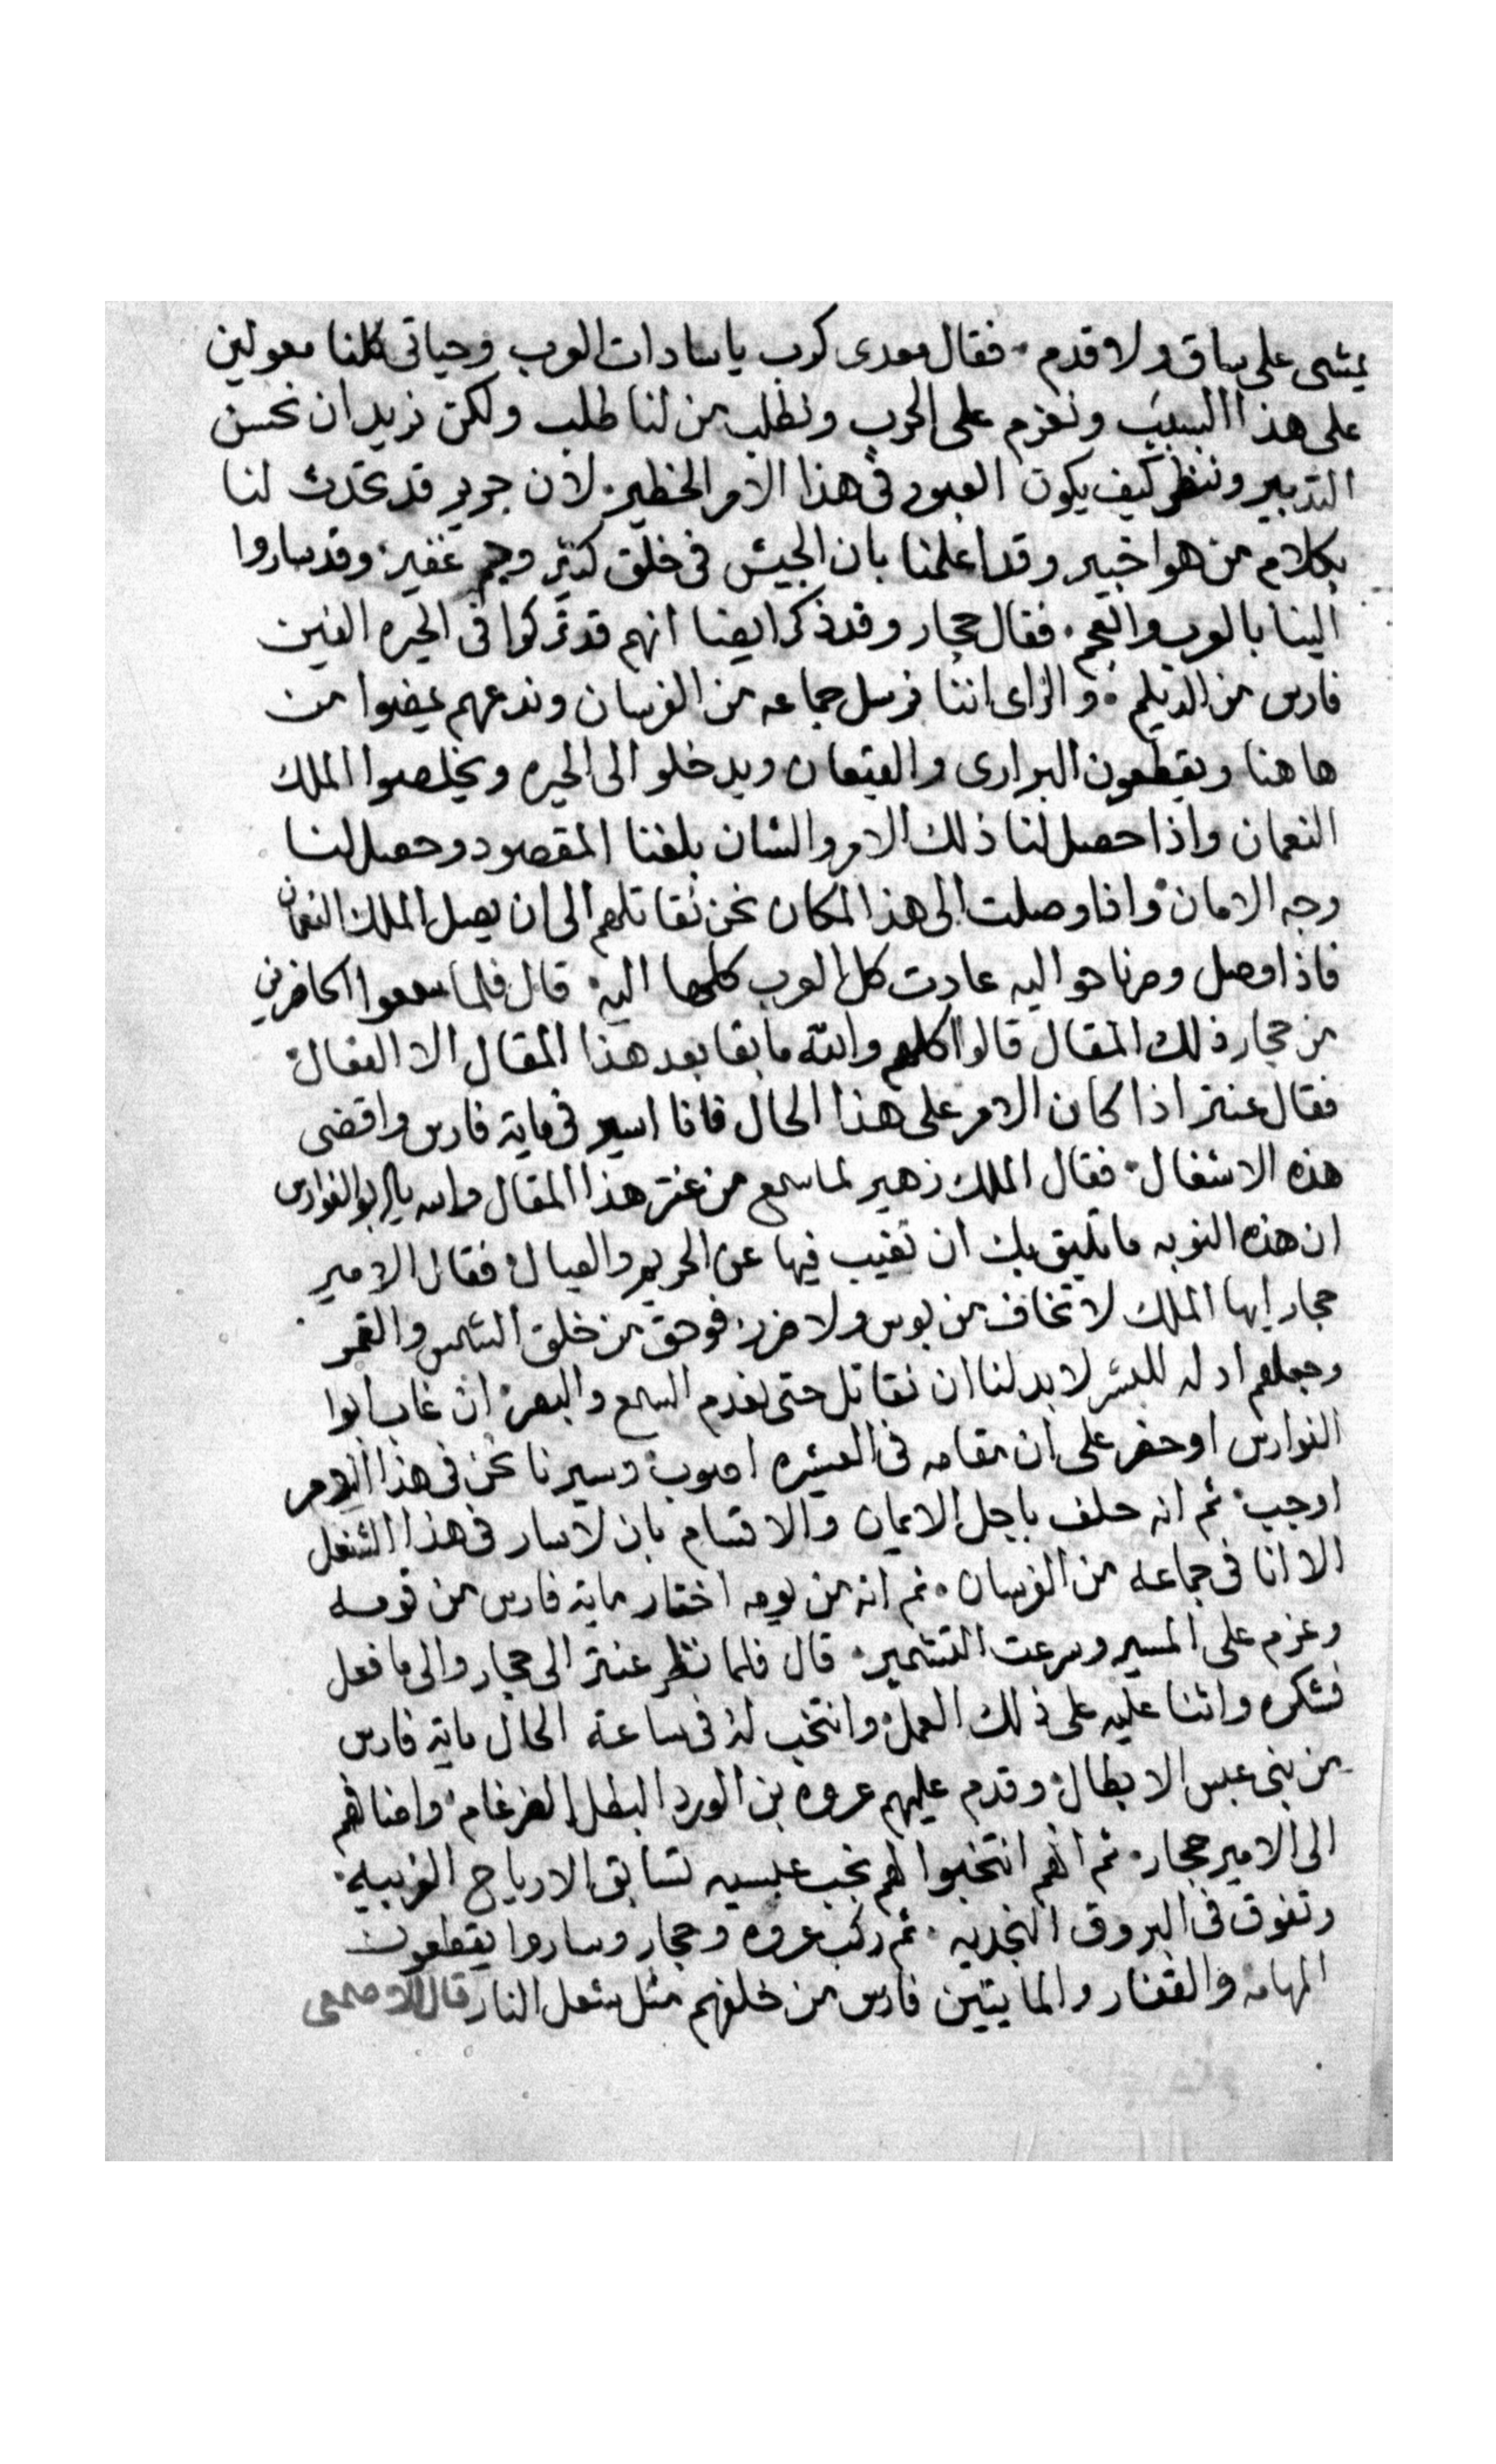 يمشى على ساق ولا قدم. فقال معدى كرب ياسادات العرب وحياتى كلنا معولين
على هذا السبب ونعزم على الحرب ونطلب من لنا طلب ولكن نريد ان نحسن
التدبير وننظر كيف يكون العبور فى هذا الامر الخطير. لان جرير قد تحدث لنا
بكلام من هوا خبير وقد اعلمنا بان الجيش فى خلق كثير وجم غفير. وقد ساروا
الينا بالعرب والعجم. فقال حجار وقد ذكر ايضا انهم قد تركوا فى الحيره الفين
فارس من الديلم. والراى اننا نرسل جماعه من الفرسان وندعهم يمضوا من
هاهنا ويقطعون البرارى والقيعان ويدخلو الى الحيره ويخلصوا الملك
النعمان واذا حصل لنا ذلك الامر والشان بلغنا المقصود وحصل لنا
وجه الامان واذا وصلت الى هذا المكان نحن نقاتلهم الى ان يصل الملك النعمان
فاذا وصل وصرنا حواليه عادت كل العرب كلها اليه. قال فلما سمعوا الحاضرين
من حجار ذلك المقال قالوا كلهم والله ما بقا بعد هذا المقال الا الفعال.
فقال عنتر اذا كان الامر على هذا الحال فانا اسير فى ماية فارس واقضى
هذه الاشغال. فقال الملك زهير لما سمع من عنتر هذا المقال والله يا ابو الفوارس
ان هذه النوبه ما تليق بك ان تغيب فيها عن الحريم والعيال. فقال الامير
حجار ايها الملك لا تخاف من بوس ولا ضرر. فوحق من خلق الشمس والقمر
وجعلهم ادله للبشر لا بد لنا ان نقاتل حتى نعدم السمع والبصر. ان غاب ابوا
الفوارس او حضر على ان مقامه فى العشيره اصوب. وسيرنا نحن فى هذا الامر
اوجب. ثم انه حلف باجل الايمان والاقسام بان لا سار فى هذا الشغل
الا انا فى جماعه من الفرسان. ثم انه من يومه اختار ماية فارس من قومه
وعزم على المسير وسرعت التشمير. قال فلما نظر عنتر الى حجار والى ما فعل
فشكره واثنا عليه على ذلك العمل. وانتخب له فى ساعة الحال ماية فارس
من بنى عبس الابطال. وقدم عليهم عروه بن الورد البطل الضرغام. واضافهم
الى الامير حجار. ثم انهم انتخبوا لهم نجب عبسيه تسابق الارياح الغربيه.
وتفوق فى البروق النجديه. ثم ركب عروه وحجار وساروا يقطعون
المهامه والقفار والمايتين فارس من خلفهم مثل شعل النار قال الاصمعى